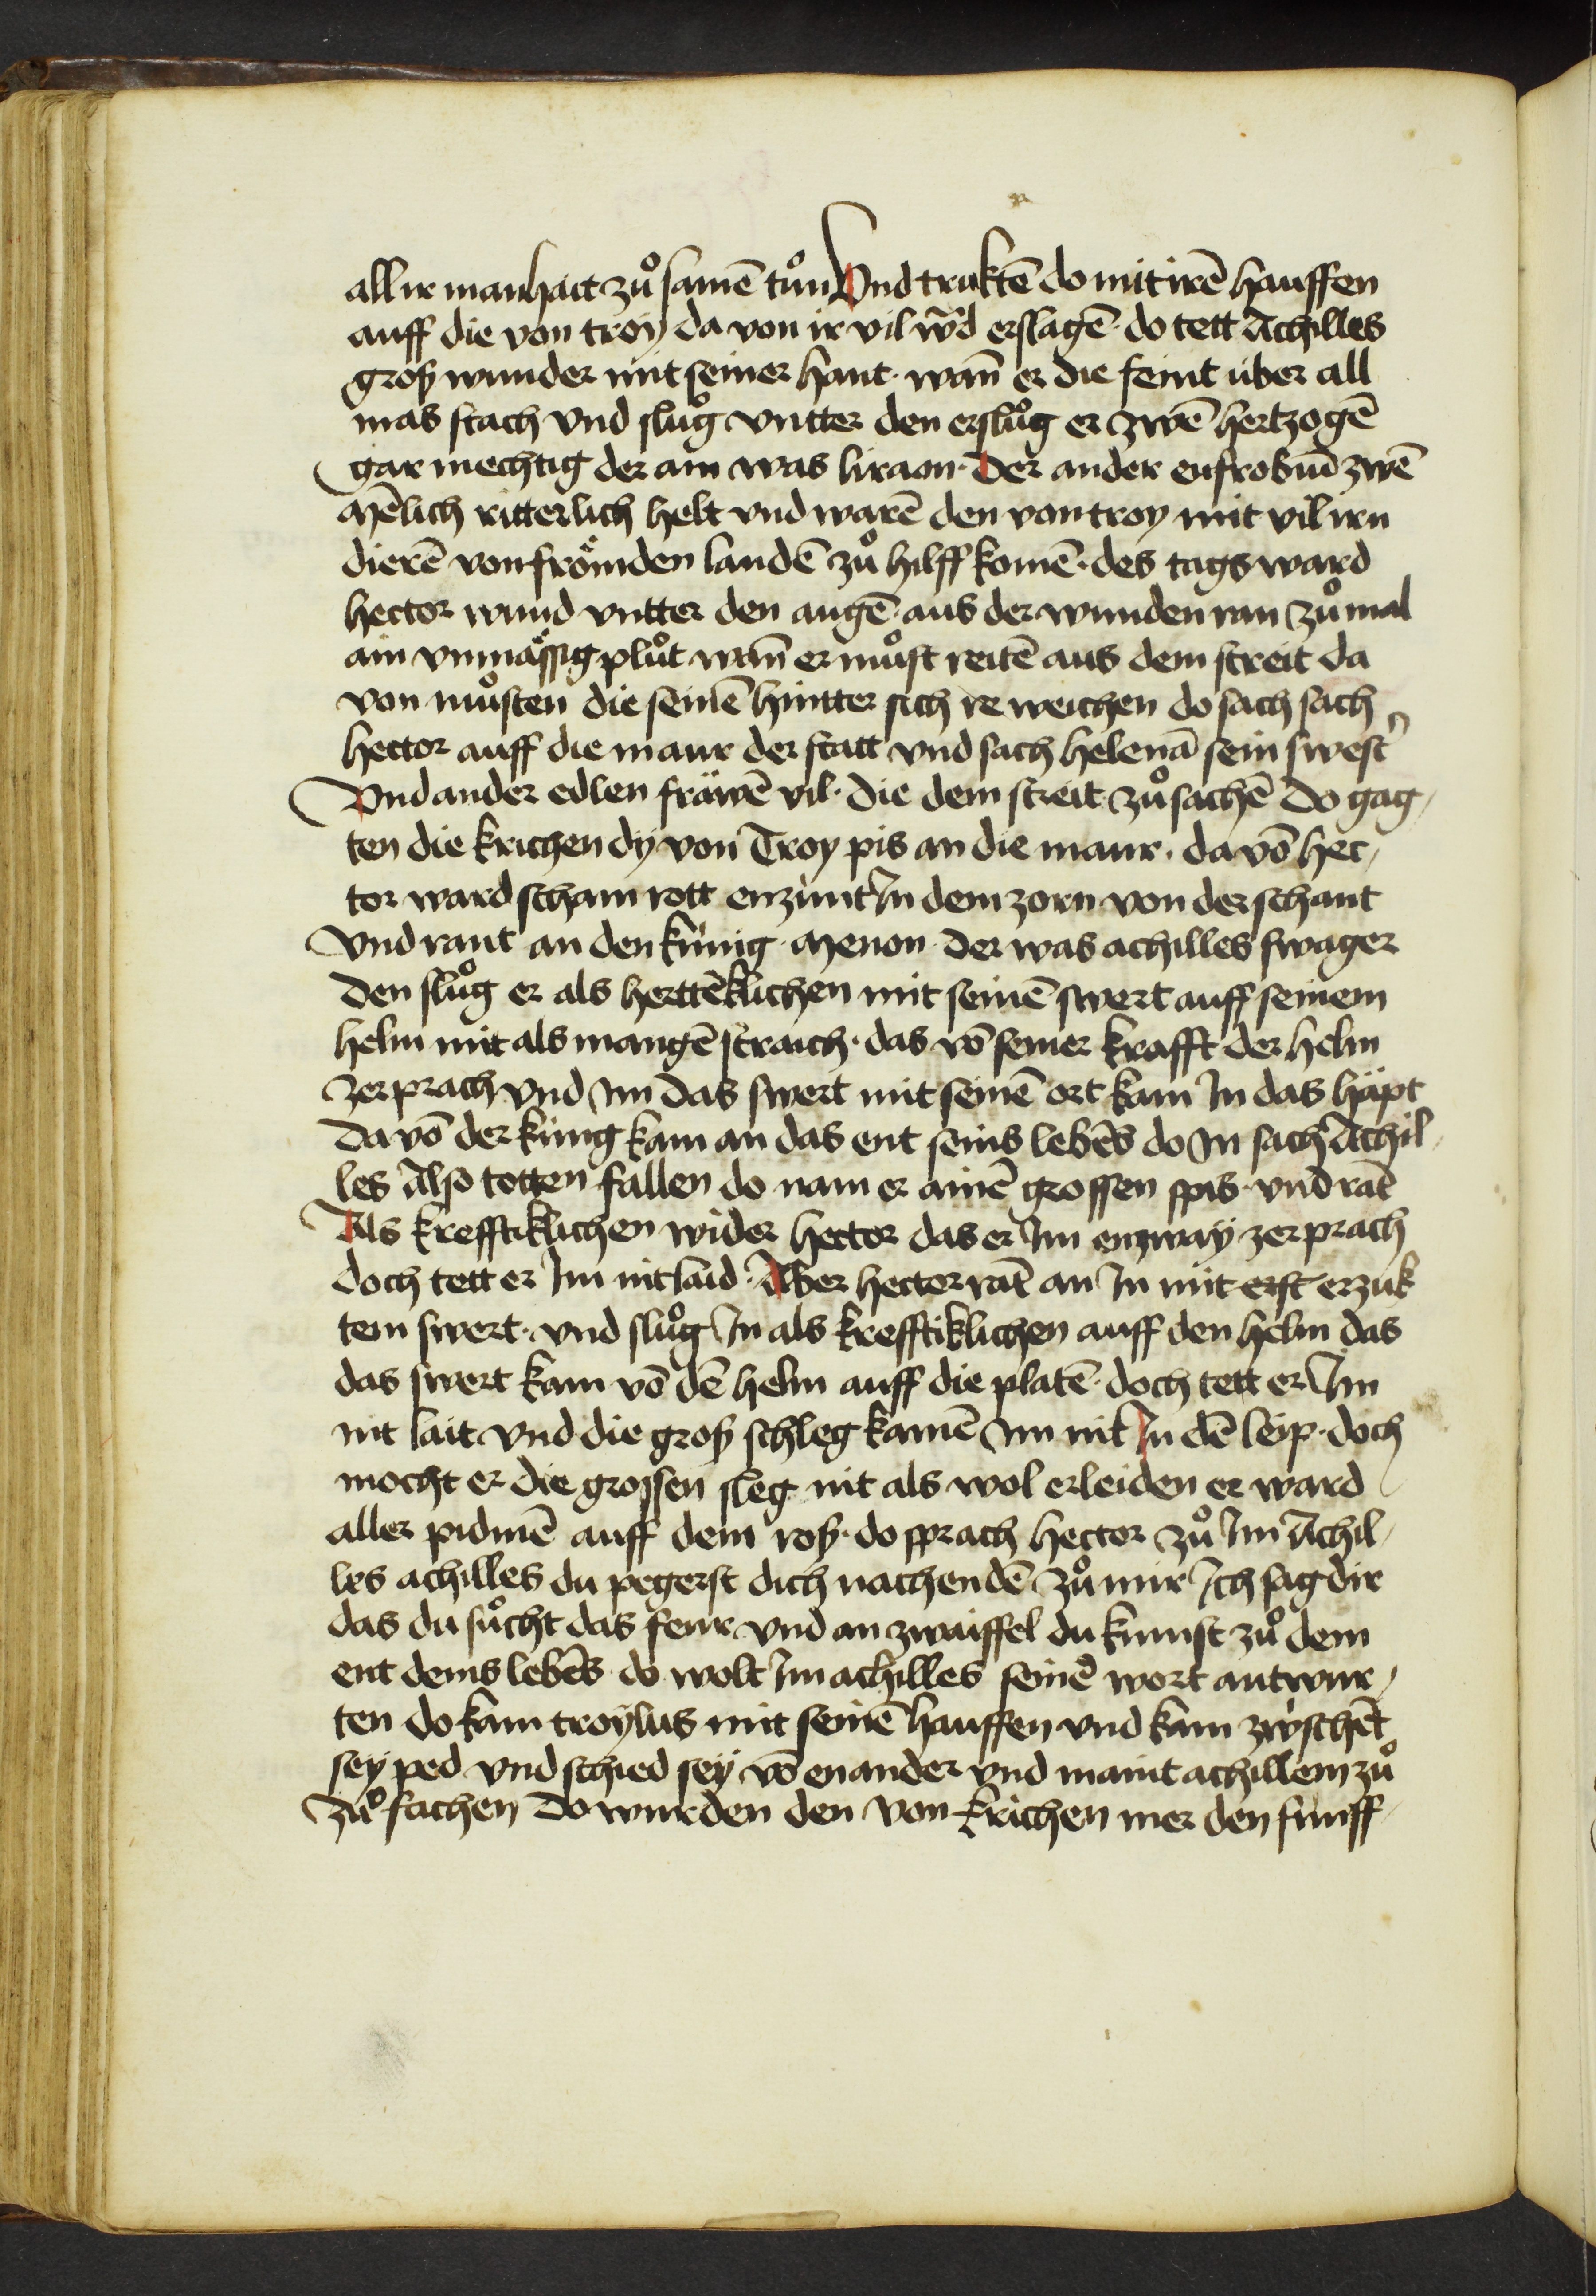 all ir manhait zuͦ samē tuͦn Vnd truktē do mit irē hauffen
auff die von troy da von ir vil wͣd erslagē · do tett Achilles
groß wunder mit seiner hant · wan̄ er die feint über all
mas stach vnd sluͦg vntter den ersluͦg er zwē hertzogē
gar mechtig der ain was liraon · Der ander eufrobiū zwē
Mēlich ritterlich helt vnd warē den von troy mit vil irn
dierē von froͤmden landē zuͦ hilff komē · des tags ward
hector wund vntter den augē · aus der wunden ran zuͦmal
ain vnmaͤssig pluͦt wan̄ er muͦst reitē aus dem streit da
von muͦsten die seinē hintter sich re weichen do sach sach
hector auff die maur der statt vnd sach helenā sein swest͛
Vnd ander edlen fräwē vil · die dem streit zuͦ sachē Do gag
ten die krichen dy von Troy pis an die maur · da vō hec
tor ward scham rott enzünt In dem zorn von der schant
Vnd rant an den künig · Menon · der was achilles swager
den sluͦg er als herttēklichen mit seinē swert auff seinem
helm mit als mangē straich · das vō seiner krafft der helm
zerprach vnd Im das swert mit seinē ort kam In das häpt
da vō der küng kam an das ent seins lebēs do In sach Achil
les Also totten fallen do nam er ainē grossen spis · vnd rāt
Als krefftiklichen wider hector das er Im enzway zerprach
doch tett er Im nit laid · Aber hector rāt an In mit erst erzuk
tem swert · vnd sluͦg In als krefftiklichen auff den helm das
das swert kam vō dē helm auff die platē · doch tett er Im
nit lait vnd die groß schleg kamē Im nit In dē leip · doch
mocht er die grossen sleg nit als wol erleiden er ward
aller pidmē auff dem roß · do sprach hector zuͦ Im Achil
les achilles du pegerst dich nachendē zuͦ mir Ich sag dir
das du suͦcht das feur vnd an zwaiffel du kumst zuͦ dem
ent deins lebēs do wolt Im achilles seinē wort antwur
ten do kam troylus mit seinē hauffen vnd kam zwschēt
sey ped vnd schied sey vō enander vnd maint achillem zuͦ
zuͦ fachen Do wurden den von krichen mer den funff